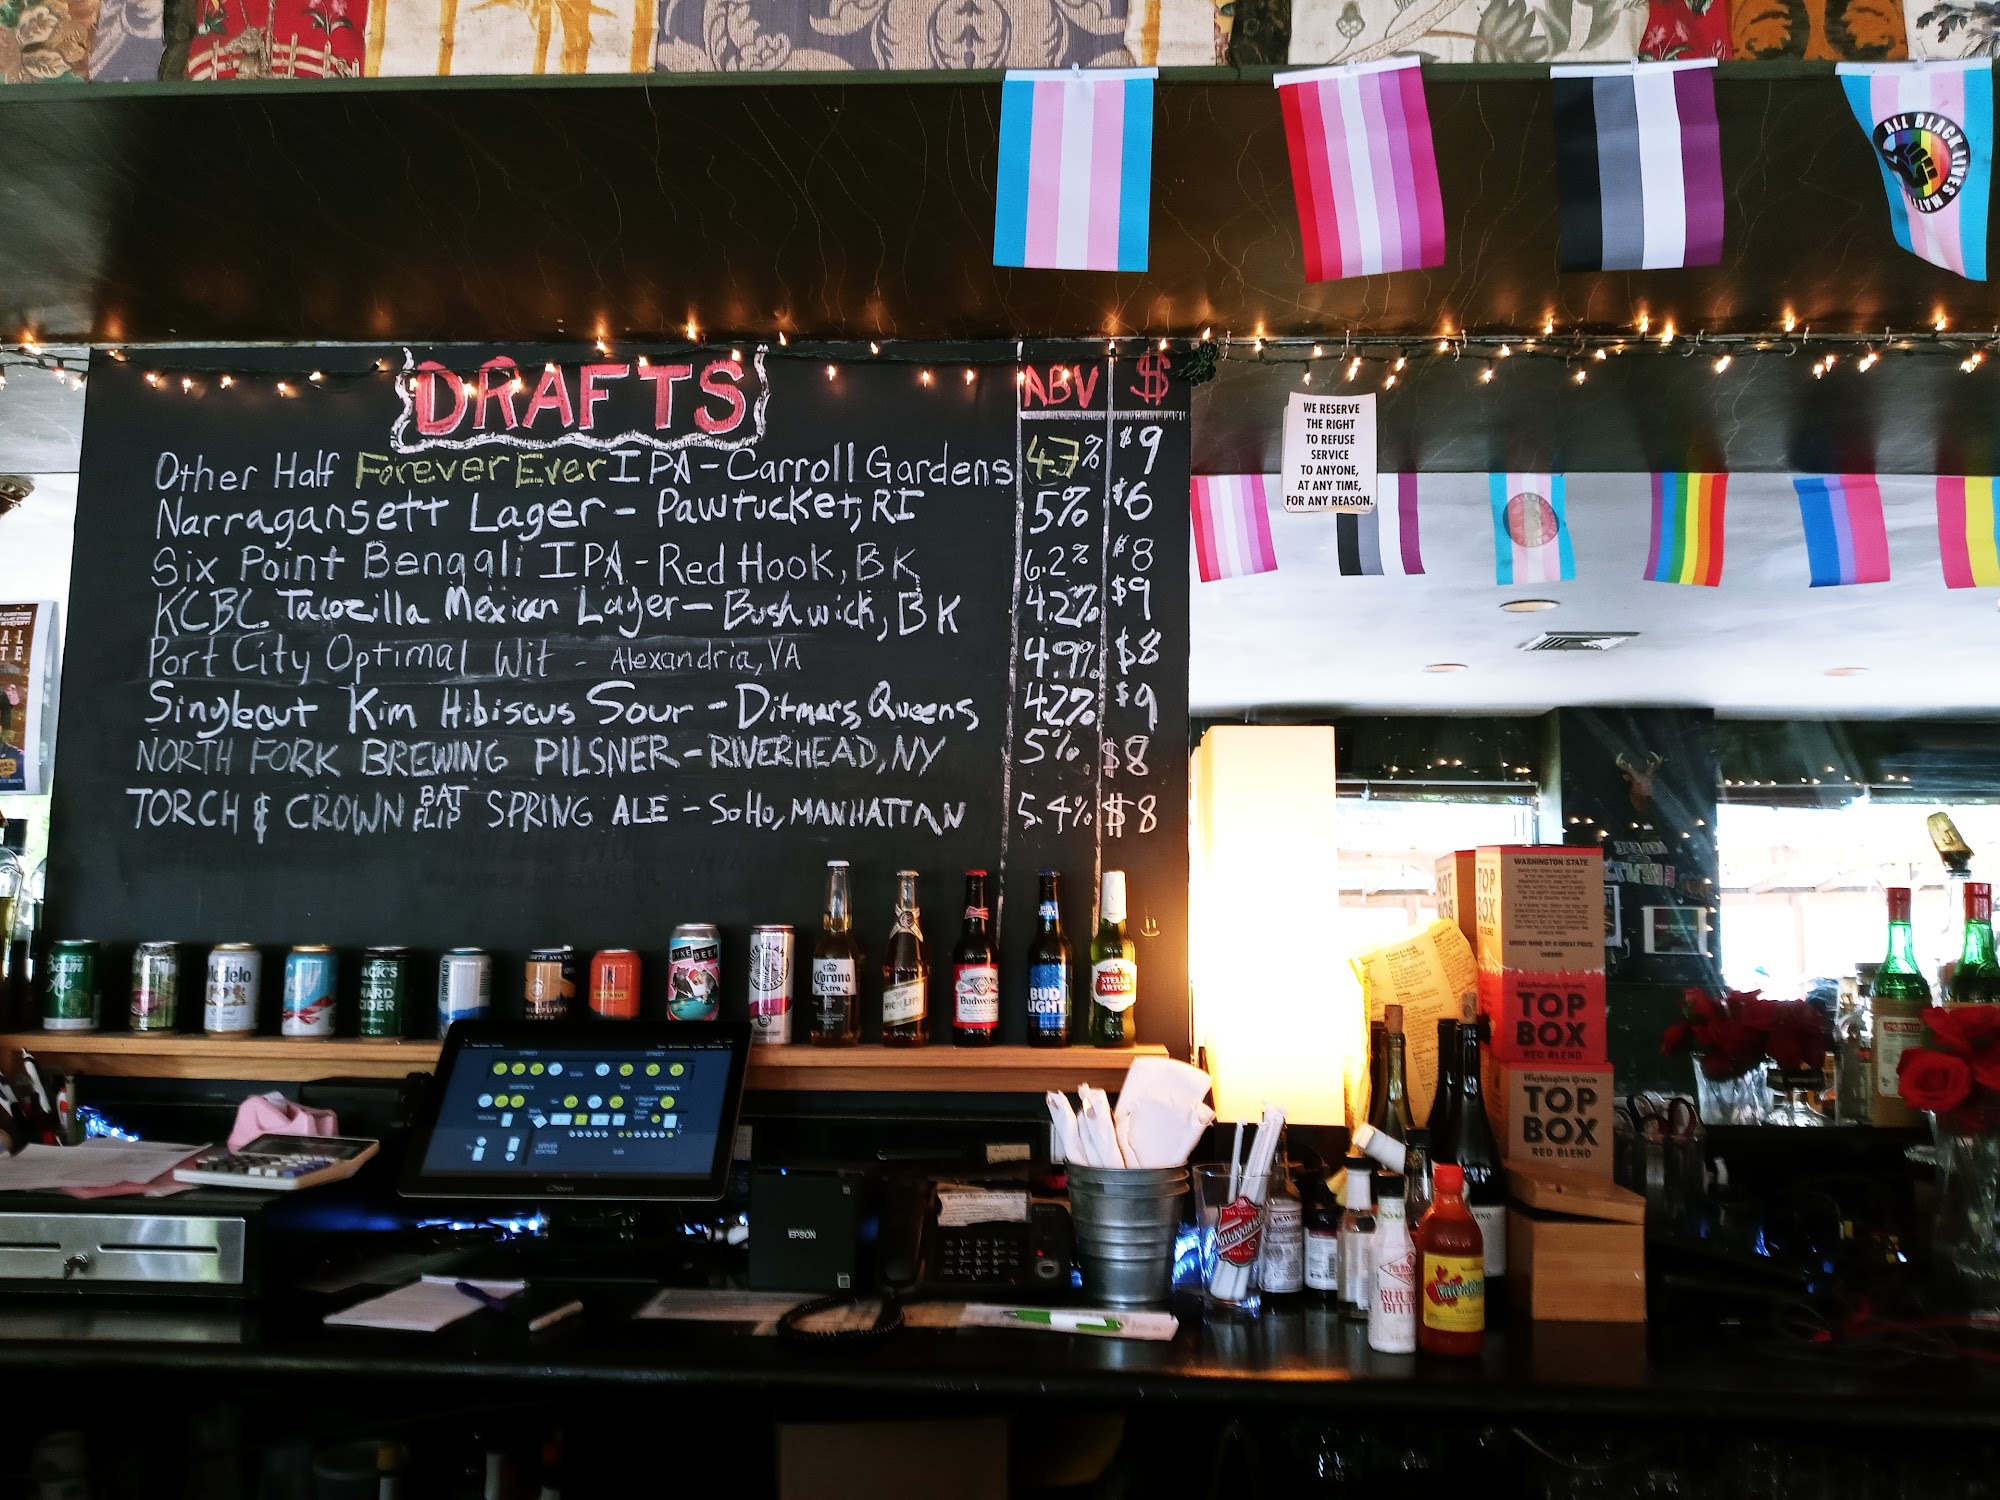 ALL BLACK LIVES
DRAFTS ABV $
Other Half Forever Ever IPA - Carroll Gardens 4.7% $9
Narragansett Lager - Pawtucket, RI 5% $6
Six Point Bengali IPA - Red Hook, BK 6.2% $8
KCBC Tacozilla Mexican Lager - Bushwick, BK 4.2% $9
Port City Optimal Wit - Alexandria, VA 4.9% $8
Singlecut Kim Hibiscus Sour - Ditmars, Queens, 4.2% $9
NORTH FORK BREWING PILSNER - RIVERHEAD, NY 5% $8
TORCH & CROWN BAT FLIP SPRING ALE - SoHo, MANHATTAN 5.4% $8
WE RESERVE
THE RIGHT
TO REFUSE
SERVICE
TO ANYONE,
AT ANY TIME,
FOR ANY REASON.
Cream
Ale
Modelo
JACK'S
HARD
CIDER
BEER
Corona
Extra
HIGH LIFE
Budweiser
BUD
LIGHT
BUD
LIGHT
STELLA
ARTOIS
WASHINGTON STATE
GREAT WINE BY A GREAT PRICE
CHEERS!
TOP
BOX
TOP
BOX
RED BLEND
Washington Grown
TOP
BOX
RED BLEND
EPSON
Narragansett
Valentina